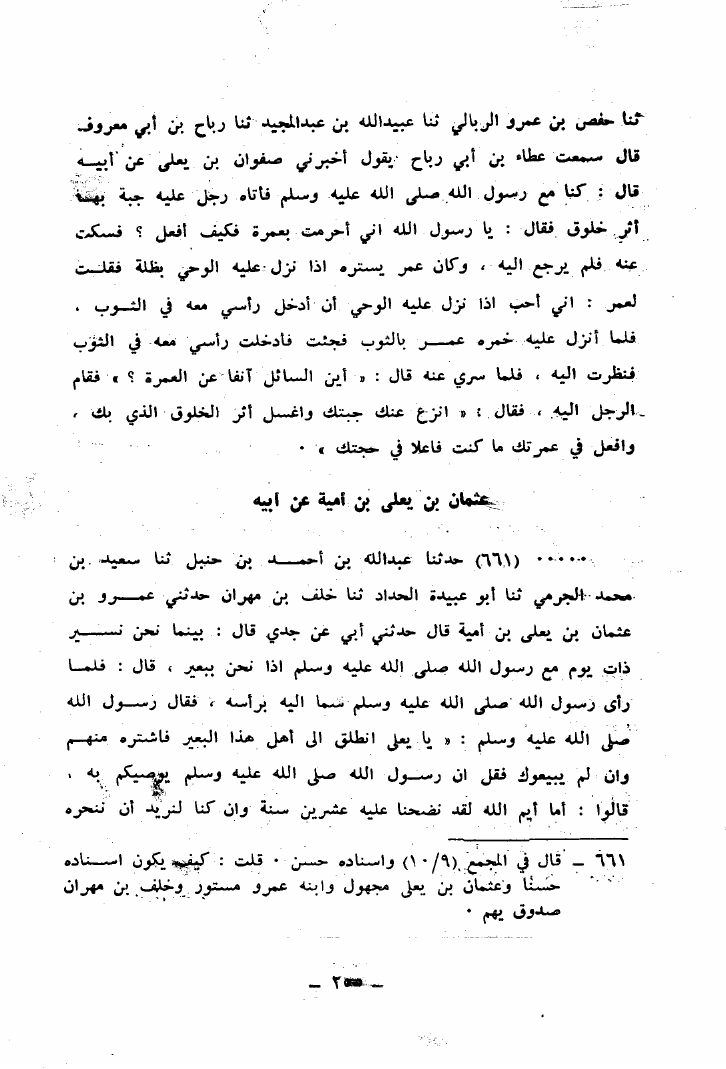 ثنا حفص بن عمرو الربالي ثنا عبيدالله بن عبدالمجيد ثنا رباح بن أبي معروف
قال سمعت عطاء بن أبي رباح يقول أخبرني صفوان بن يعلى عن أبيه
قال : كنا مع رسول الله صلى الله عليه وسلم فأتاه رجل عليه جبة بها
أثر خلوق فقال : يا رسول الله اني أحرمت بعمرة فكيف أفعل ؟ فسكت
عنه فلم يرجع اليه ، وكان عمر يستره اذا نزل عليه الوحي يظلة فقلت
لعمر : اني أحب اذا نزل عليه الوحي أن أدخل رأسي معه في الثوب .
فلما أنزل عليه خمره عمر بالثوب فجئت فأدخلت رأسي معه في الثوب
فنظرت اليه ، فلما سري عنه قال : « أين السائل آنفا عن العمرة ؟ » فقام
الرجل اليه ، فقال : « انزع عنك جبتك واغسل أثر الخلوق الذي بك ،
وافعل في عمرتك ما كنت فاعلا في حجتك » .
عثمان بن يعلى بن أمية عن أبيه
..... (٦٦١) حدثنا عبدالله بن أحمد بن حنبل ثنا سعيد بن
محمد الجرمي ثنا أبو عبيدة الحداد ثنا خلف بن مهران حدثني عمرو بن
عثمان بن يعلى بن أمية قال حدثني أبي عن جدي قال : بينما نحن نسير
ذات يوم مع رسول الله صلى الله عليه وسلم اذا نحن ببعير ، قال : فلما
رأى رسول الله صلى الله عليه وسلم سما اليه برأسه ، فقال رسول الله
صلى الله عليه وسلم : « يا يعلى انطلق الى أهل هذا البعير فاشتره منهم
وان لم يبيعوك فقل ان رسول الله صلى الله عليه وسلم يوصيكم به .
قالوا : أما أيم الله لقد نضحنا عليه عشرين سنة وان كنا لنريد أن ننحره
٦٦١ – قال في المجمع (١٠/٩) واسناده حسن . قلت : كيف يكون اسناده
حسنا وعثمان بن يعلى مجهول وابنه عمرو مستور وخلف بن مهران
صدوق يهم .